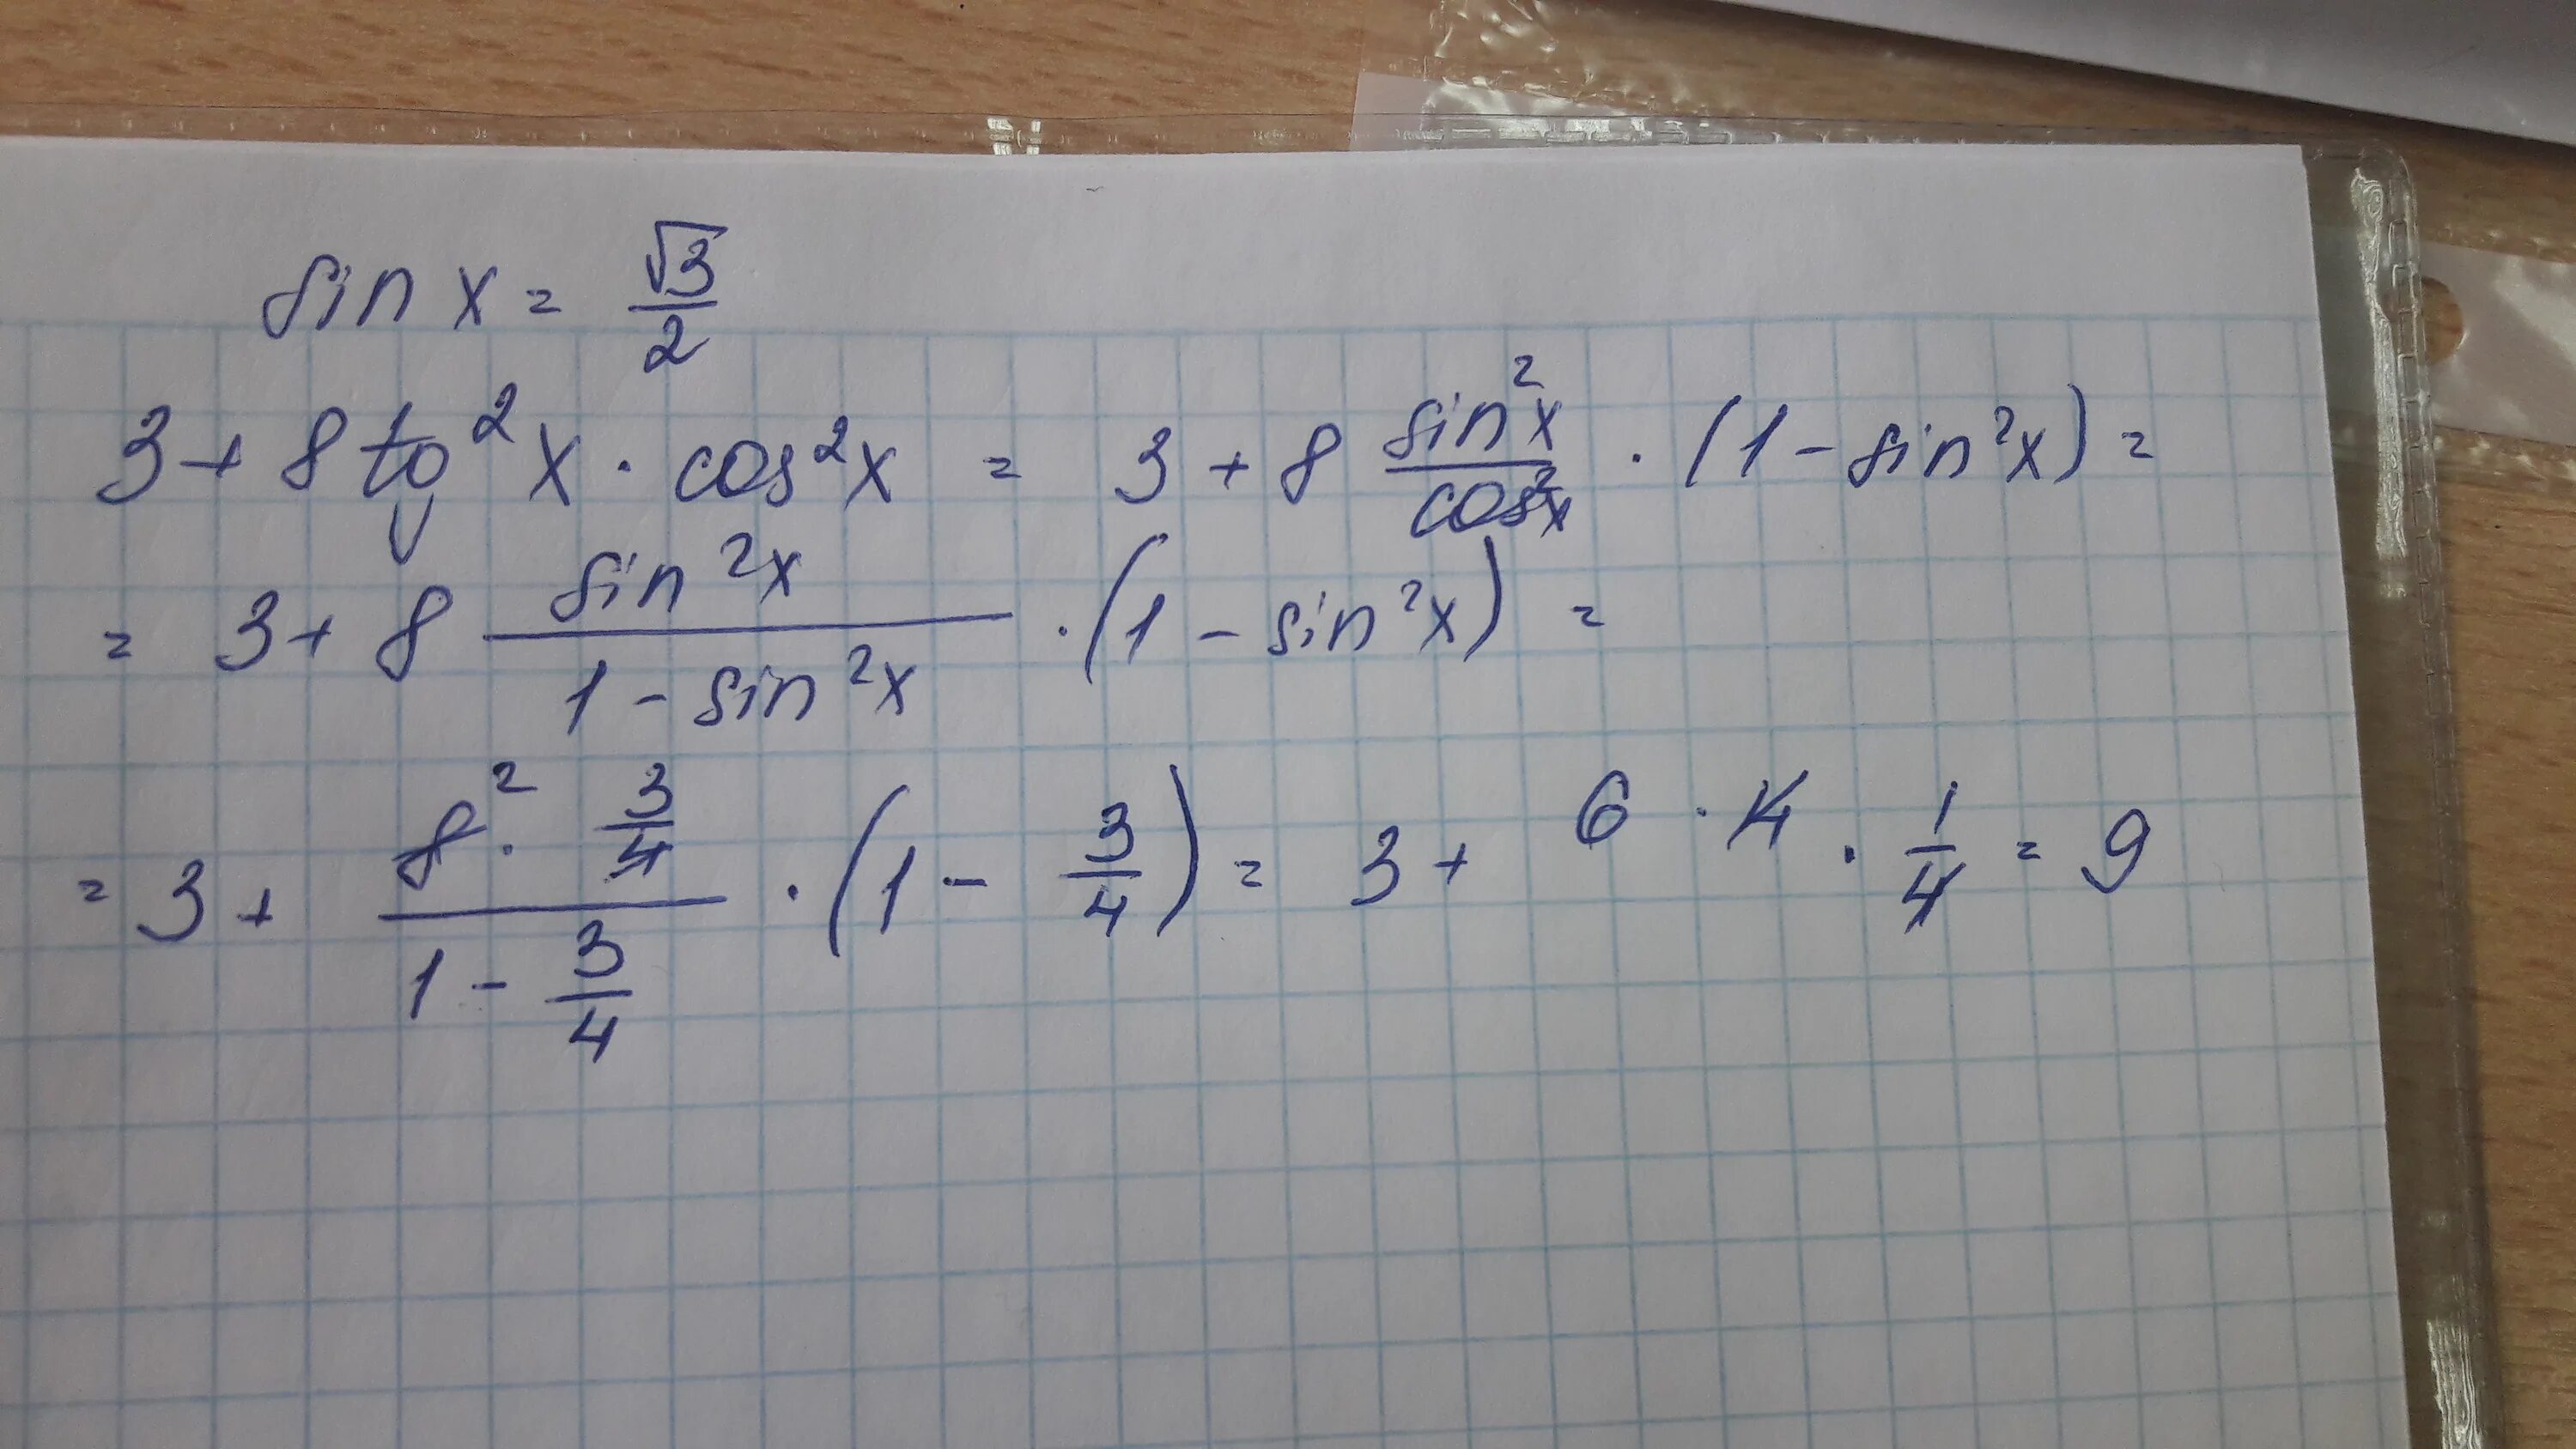 sin x = √3/2
3 + 8 tg²x · cos²x = 3 + 8 sin²x/cos²x · (1 - sin²x) =
= 3 + 8 sin²x/(1 - sin²x) · (1 - sin²x) =
= 3 + (8² · 3/4)/(1 - 3/4) · (1 - 3/4) = 3 + 6 · 4 · 1/4 = 9